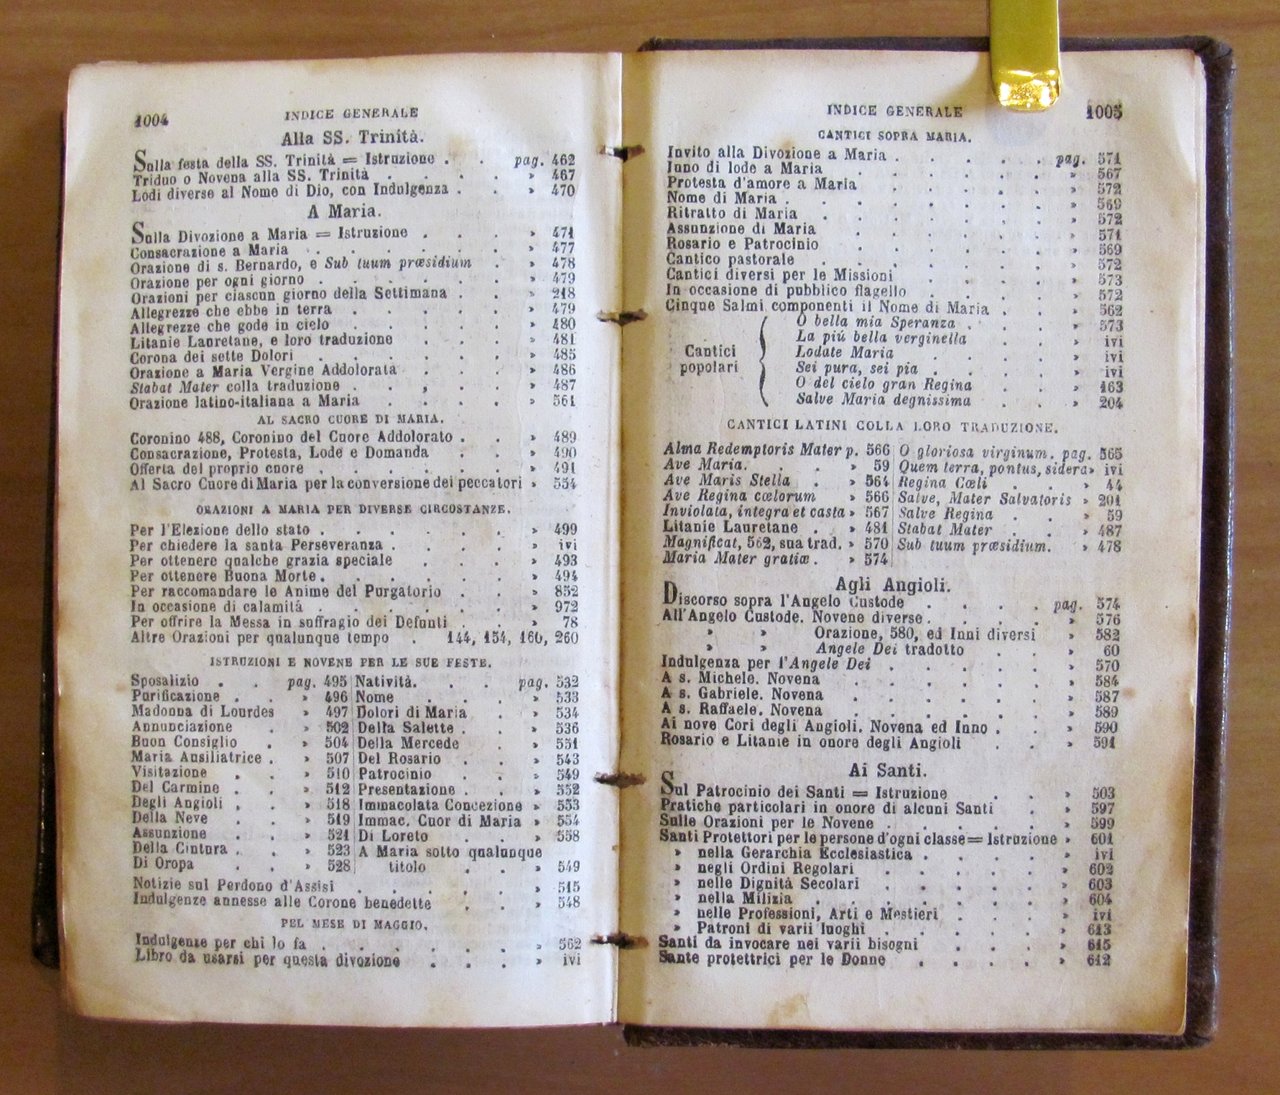 1004 INDICE GENERALE
Alla SS. Trinità.
Sulla festa della SS. Trinità = Istruzione . . pag. 462
Triduo o Novena alla SS. Trinità . . . . » 467
Lodi diverse al Nome di Dio, con Indulgenza . . » 470
A Maria.
Sulla Divozione a Maria = Istruzione . . . . » 471
Consacrazione a Maria . . . . . . » 477
Orazione di s. Bernardo, e Sub tuum præsidium . » 478
Orazione per ogni giorno . . . . . . » 479
Orazioni per ciascun giorno della Settimana . . » 218
Allegrezze che ebbe in terra . . . . . » 479
Allegrezze che gode in cielo . . . . . » 480
Litanie Lauretane, e loro traduzione . . . » 481
Corona dei sette Dolori . . . . . . » 485
Orazione a Maria Vergine Addolorata . . . » 486
Stabat Mater colla traduzione . . . . . » 487
Orazione latino-italiana a Maria . . . . » 561
AL SACRO CUORE DI MARIA.
Coronino 488, Coronino del Cuore Addolorato . . » 489
Consacrazione, Protesta, Lode e Domanda . . » 490
Offerta del proprio cuore . . . . . » 491
Al Sacro Cuore di Maria per la conversione dei peccatori . » 554
ORAZIONI A MARIA PER DIVERSE CIRCOSTANZE.
Per l'Elezione dello stato . . . . . . » 499
Per chiedere la santa Perseveranza . . . . » ivi
Per ottenere qualche grazia speciale . . . » 493
Per ottenere Buona Morte . . . . . . » 494
Per raccomandare le Anime del Purgatorio . . » 852
In occasione di calamità . . . . . . » 972
Per offrire la Messa in suffragio dei Defunti . . » 78
Altre Orazioni per qualunque tempo . 144, 154, 160, 260
ISTRUZIONI E NOVENE PER LE SUE FESTE.
Sposalizio . . pag. 495
Purificazione . . » 496
Madonna di Lourdes » 497
Annunciazione . » 502
Buon Consiglio . » 504
Maria Ausiliatrice . » 507
Visitazione . . » 510
Del Carmine . . » 512
Degli Angioli . . » 518
Della Neve . . » 519
Assunzione . . » 521
Della Cintura . . » 523
Di Oropa . . » 528
Natività. . . pag. 532
Nome . . . » 533
Dolori di Maria . . » 534
Della Salette . . » 536
Della Mercede . . » 551
Del Rosario . . » 543
Patrocinio . . . » 549
Presentazione . . » 552
Immacolata Concezione » 553
Immac. Cuor di Maria » 554
Di Loreto . . . » 558
A Maria sotto qualunque
titolo . . » 549
Notizie sul Perdono d'Assisi . . . . . » 515
Indulgenze annesse alle Corone benedette . . » 548
PEL MESE DI MAGGIO.
Indulgenze per chi lo fa . . . . . . » 562
Libro da usarsi per questa divozione . . . . » ivi
INDICE GENERALE 1005
CANTICI SOPRA MARIA.
Invito alla Divozione a Maria . . . . . pag. 571
Inno di lode a Maria . . . . . . » 567
Protesta d'amore a Maria . . . . . » 572
Nome di Maria . . . . . . . . » 569
Ritratto di Maria . . . . . . . » 572
Assunzione di Maria . . . . . . » 571
Rosario e Patrocinio . . . . . . » 569
Cantico pastorale . . . . . . . » 572
Cantici diversi per le Missioni . . . . » 573
In occasione di pubblico flagello . . . . » 572
Cinque Salmi componenti il Nome di Maria . . » 562
Cantici popolari
O bella mia Speranza . . . . » 573
La più bella verginella . . . . » ivi
Lodate Maria . . . . . » ivi
Sei pura, sei pia . . . . . » ivi
O del cielo gran Regina . . . » 163
Salve Maria degnissima . . . » 204
CANTICI LATINI COLLA LORO TRADUZIONE.
Alma Redemptoris Mater p. 566
Ave Maria. . . » 59
Ave Maris Stella . » 564
Ave Regina cœlorum » 566
Inviolata, integra et casta » 567
Litanie Lauretane . » 481
Magnificat, 562, sua trad. » 570
Maria Mater gratiæ . » 574
O gloriosa virginum. pag. 565
Quem terra, pontus, sidera » ivi
Regina Cœli . . » 44
Salve, Mater Salvatoris » 201
Salve Regina . . » 59
Stabat Mater . . » 487
Sub tuum præsidium. » 478
Agli Angioli.
Discorso sopra l'Angelo Custode . . . . pag. 574
All'Angelo Custode. Novene diverse . . . . » 576
» » Orazione, 580, ed Inni diversi » 582
» » Angele Dei tradotto . . » 60
Indulgenza per l'Angele Dei . . . . . » 570
A s. Michele. Novena . . . . . . » 584
A s. Gabriele. Novena . . . . . . » 587
A s. Raffaele. Novena . . . . . . » 589
Ai nove Cori degli Angioli. Novena ed Inno . . » 590
Rosario e Litanie in onore degli Angioli . . . » 591
Ai Santi.
Sul Patrocinio dei Santi = Istruzione . . . » 503
Pratiche particolari in onore di alcuni Santi . . » 597
Sulle Orazioni per le Novene . . . . . » 599
Santi Protettori per le persone d'ogni classe = Istruzione » 601
» nella Gerarchia Ecclesiastica . . . . » ivi
» negli Ordini Regolari . . . . . » 602
» nelle Dignità Secolari . . . . . » 603
» nella Milizia . . . . . . . » 604
» nelle Professioni, Arti e Mestieri . . . » ivi
» Patroni di varii luoghi . . . . . » 613
Santi da invocare nei varii bisogni . . . . » 615
Sante protettrici per le Donne . . . . . » 612